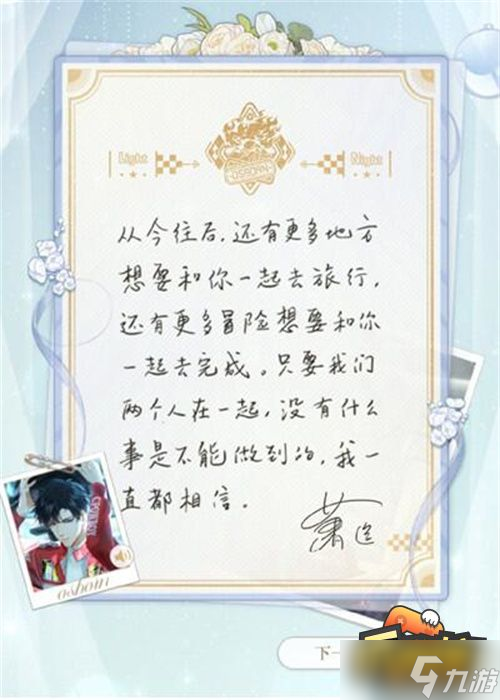 Light
Night
OSBORN
从今往后，还有更多地方
想要和你一起去旅行，
还有更多冒险想要和你
一起去完成。只要我们
两个人在一起，没有什么
事是不能做到的，我一
直都相信。
萧逸
osborn
下一
九游